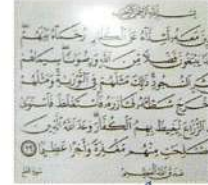 بسم الله الرحمن الرحيم
معه أشداء على الكفار رحماء بينهم
يبتغون فضلا من الله ورضوانا سيماهم
السجود ذلك مثلهم في التوراة ومثلهم
أخرج شطأه فآزره فاستغلظ فاستوى
الزراع ليغيظ بهم الكفار وعد الله الذين
الصالحات منهم مغفرة وأجرا عظيما ٢٩
صدق الله العظيم